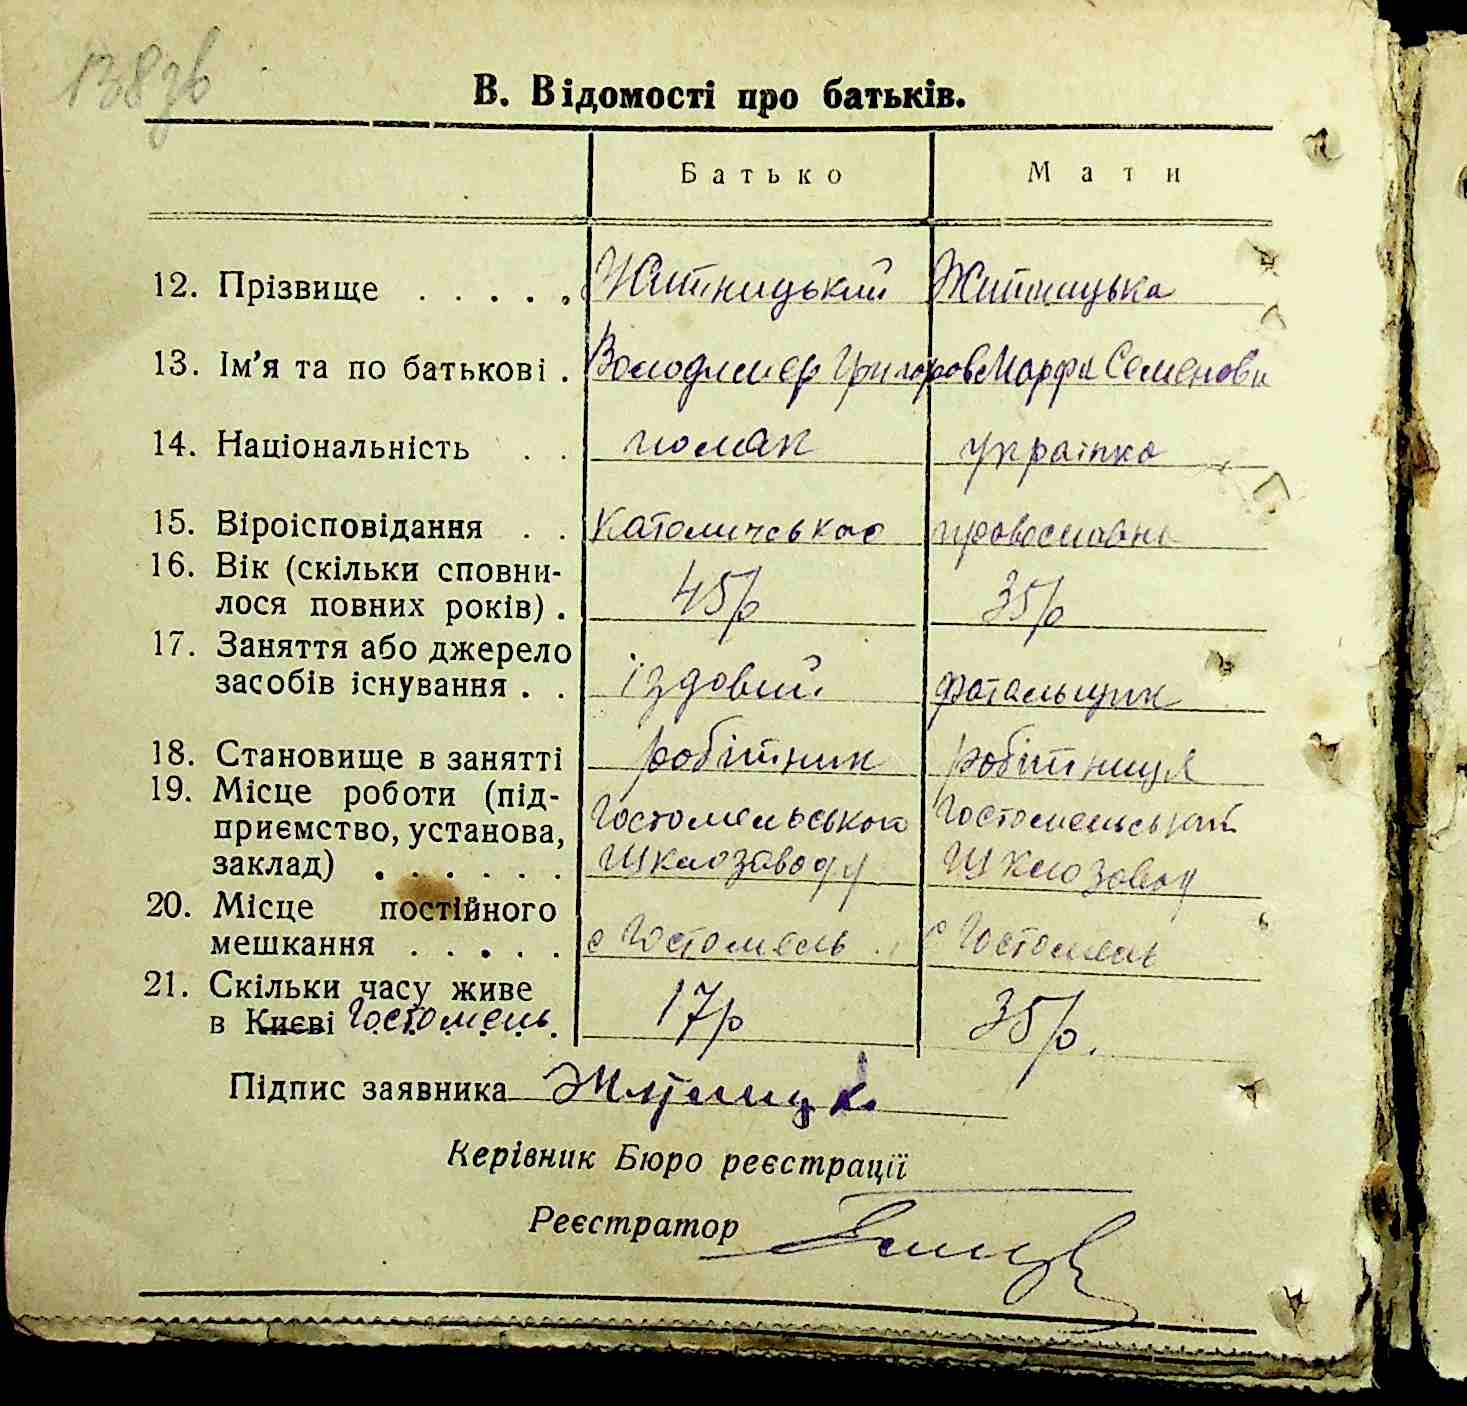 138зв
В. Відомості про батьків.
Батько Мати
12. Прізвище . . . . . Житницький Житницька
13. Ім’я та по батькові . Володимер Григоров Марфа Семенова
14. Національність . . поляк українка
15. Віроісповідання . . католичеського православна
16. Вік (скільки сповни-
лося повних років) . 45р 35р
17. Заняття або джерело
засобів існування . . їздовий
18. Становище в занятті робітник робітниця
19. Місце роботи (під- Гостомельського Гостомельський
приємство, установа, Шклозаводу Шклозавод
заклад) . . . . . .
20. Місце постійного
мешкання . . . . . с Гостомель с Гостомель
21. Скільки часу живе
в Києві Гостомель 17р 35р.
Підпис заявника Житницьк
Керівник Бюро реєстрації
Реєстратор